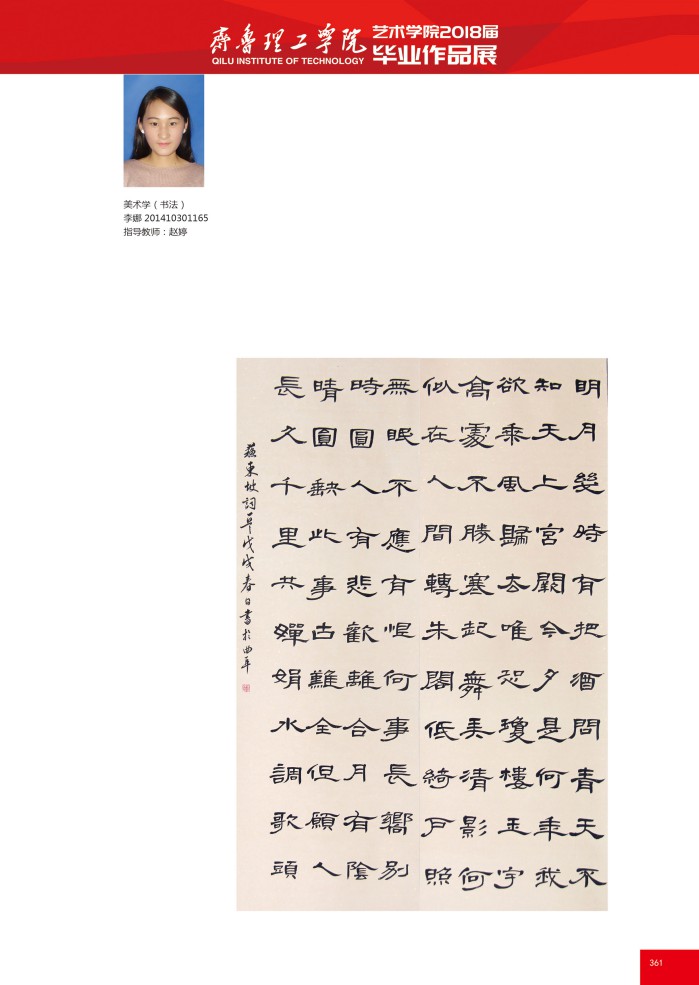 齊魯理工學院
QILU INSTITUTE OF TECHNOLOGY
艺术学院2018届
毕业作品展
美术学（书法）
李娜 201410301165
指导教师：赵婷
明月幾時有把酒問青天不
知天上宮闕今夕是何年我
欲乘風歸去唯恐瓊樓玉宇
高處不勝寒起舞弄清影何
似在人間轉朱閣低綺戶照
無眠不應有恨何事長嚮別
時圓人有悲歡離合月有陰
晴圓缺此事古難全但願人
長久千里共嬋娟水調歌頭
蘇東坡詞戊戌春日書於曲阜
361